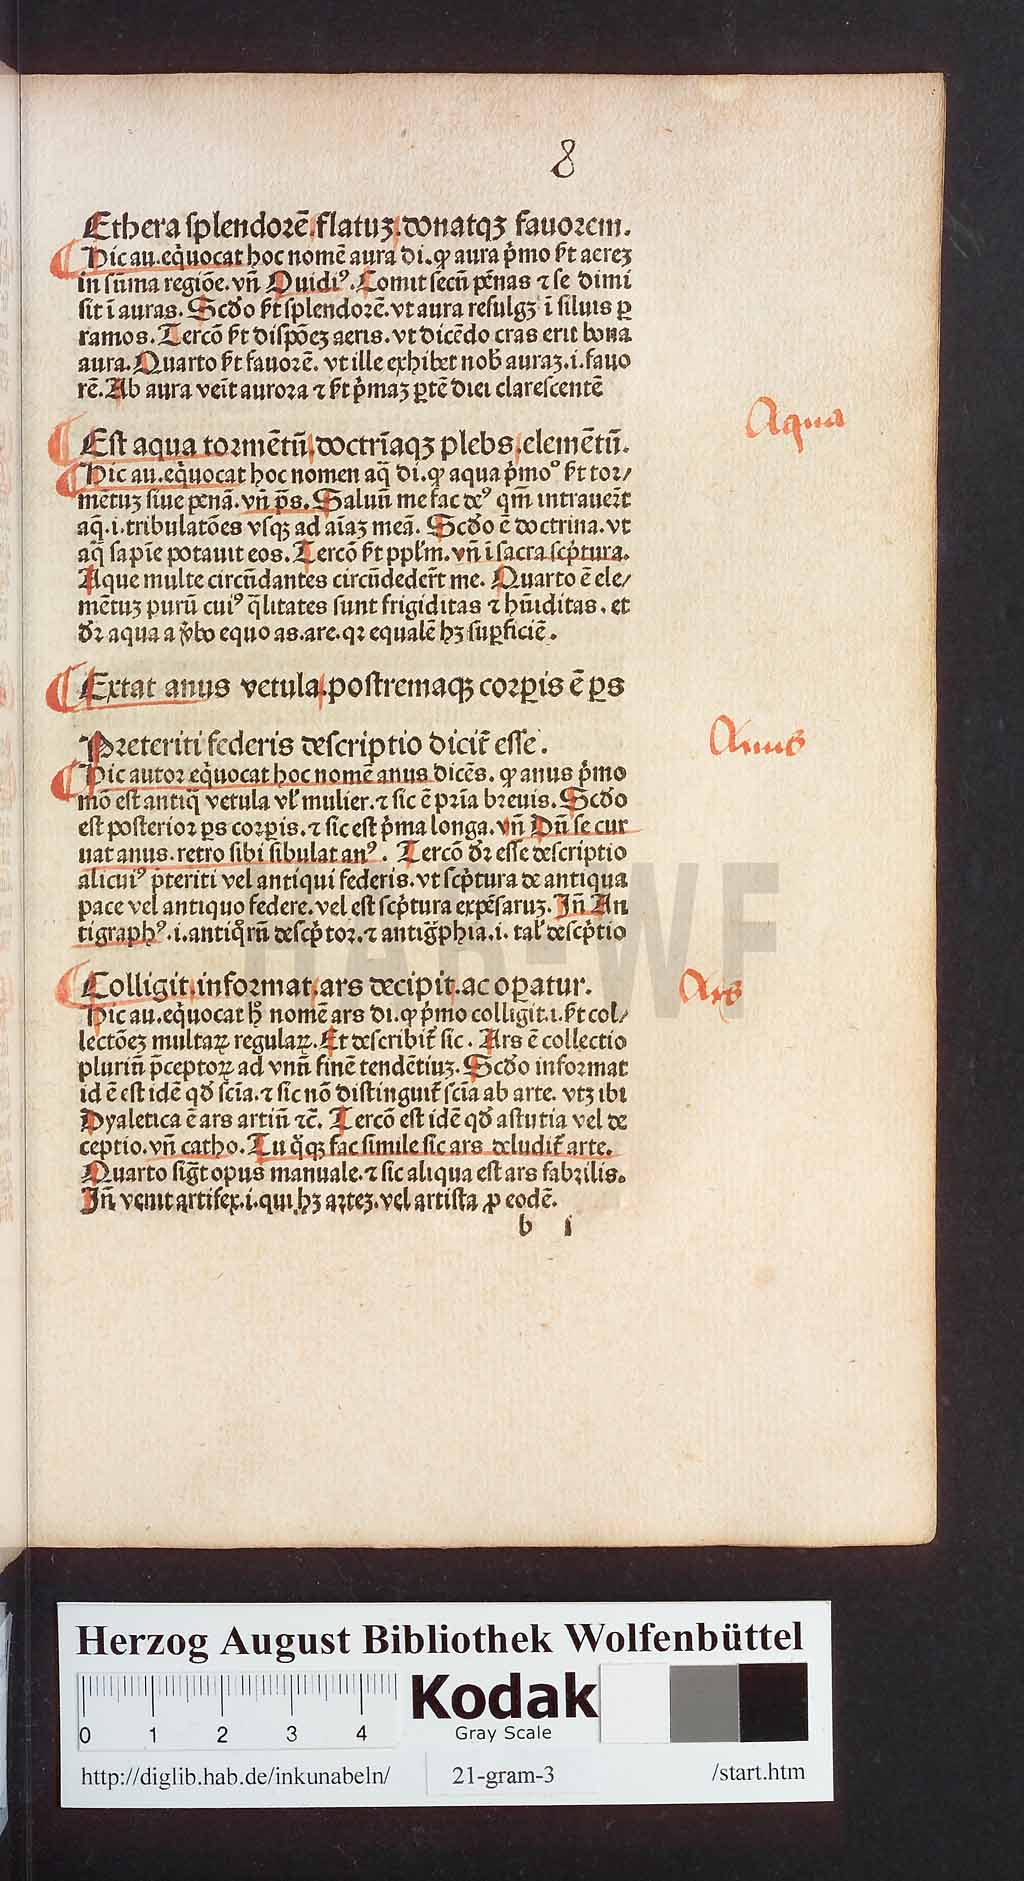 8
Ethera splendorē.flatuꝫ.donatqꝫ fauorem.
Hic au.eq̇uocat hoc nomē aura di.ꝙ aura p̓mo ſt aereꝫ
in sūma regiōe.vñ Ouidiꝰ.Comit secū pēnas ⁊ se dimi
sit ī auras. Scd̓o ſt splendorē.vt aura resulgꝫ ī siluis ꝑ
ramos.Tercō ſt dispōeꝫ aeris.vt dicēdo cras erit bona
aura.Quarto ſt fauorē. vt ille exhibet nob̓ auraꝫ.i.fauo
rē.Ab aura veīt aurora ⁊ ſt p̓maꝫ ꝑtē diei clarescentē
Aqua
Est aqua tormētū.doctrīaqꝫ plebs.elemētū.
Hic au.eq̇uocat hoc nomen aq̄ di.ꝙ aqua p̓moº ſt tor/
mētuꝫ siue penā.vñ p̄s.Saluū me fac deꝰ qm̄ intrauerūt
aq̄.i.tribulatōes vsqꝫ ad aīaꝫ meā. Scd̓o ē doctrina.vt
aq̄ sapīe potauit eos.Tercō ſt ppl̓m.vñ ī sacra scp̓tura.
Aque multe circūdantes circūdeder̄t me. Quarto ē ele/
mētuꝫ purū cuiꝰ q̄litates sunt frigiditas ⁊ hūiditas.et
d̓r aqua a v̓bo equo as.are.qꝛ equalē hꝫ suꝑficiē.
Extat anus vetula.postremaqꝫ corꝑis ē ꝑs
Anus
Preteriti federis descriptio dicit̄ esse.
Hic autor eq̇uocat hoc nomē anus dicēs.ꝙ anus p̓mo
mō est antiq̄ vetula vl̓ mulier.⁊ sic ē pīa breuis.Scd̓o
est posterior ꝑs corꝑis.⁊ sic est p̓ma longa.vñ Dū se cur
uat anus.retro sibi sibulat anꝰ. Tercō d̓r esse descriptio
alicuiꝰ p̄teriti vel antiqui federis.vt scp̓tura de antiqua
pace vel antiquo federe.vel est scp̓tura expēsaruꝫ.Iñ An
tigraphꝰ.i.antiq̊rū descp̓tor.⁊ antigp̄hia.i. tal̓ descp̓tio
Colligit.informat.ars decipit.ac oꝑatur.
Ars
Hic au.eq̇uocat h̊ nomē ars di.ꝙ p̓mo colligit.i.ſt col/
lectōeꝫ multaꝝ regulaꝝ.Et describit̄ sic. Ars ē collectio
plurīū p̄ceptoꝝ ad vnū finē tendētiuꝫ.Scd̓o informat
id ē est idē qd̓ scīa.⁊ sic nō distinguit̄ scīa ab arte. vtꝫ ibi
Dyaletica ē ars artiū ⁊c̄. Tercō est idē qd̓ astutia vel de
ceptio.vñ catho.Tu q̊qꝫ fac simile sic ars deludit̄ arte.
Quarto sig̅t opus manuale.⁊ sic aliqua est ars fabrilis.
Iñ venit artifex.i.qui hꝫ arteꝫ.vel artista ꝓ eodē.
b i
Herzog August Bibliothek Wolfenbüttel
0 1 2 3 4
Kodak
Gray Scale
http://diglib.hab.de/inkunabeln/ 21-gram-3 /start.htm